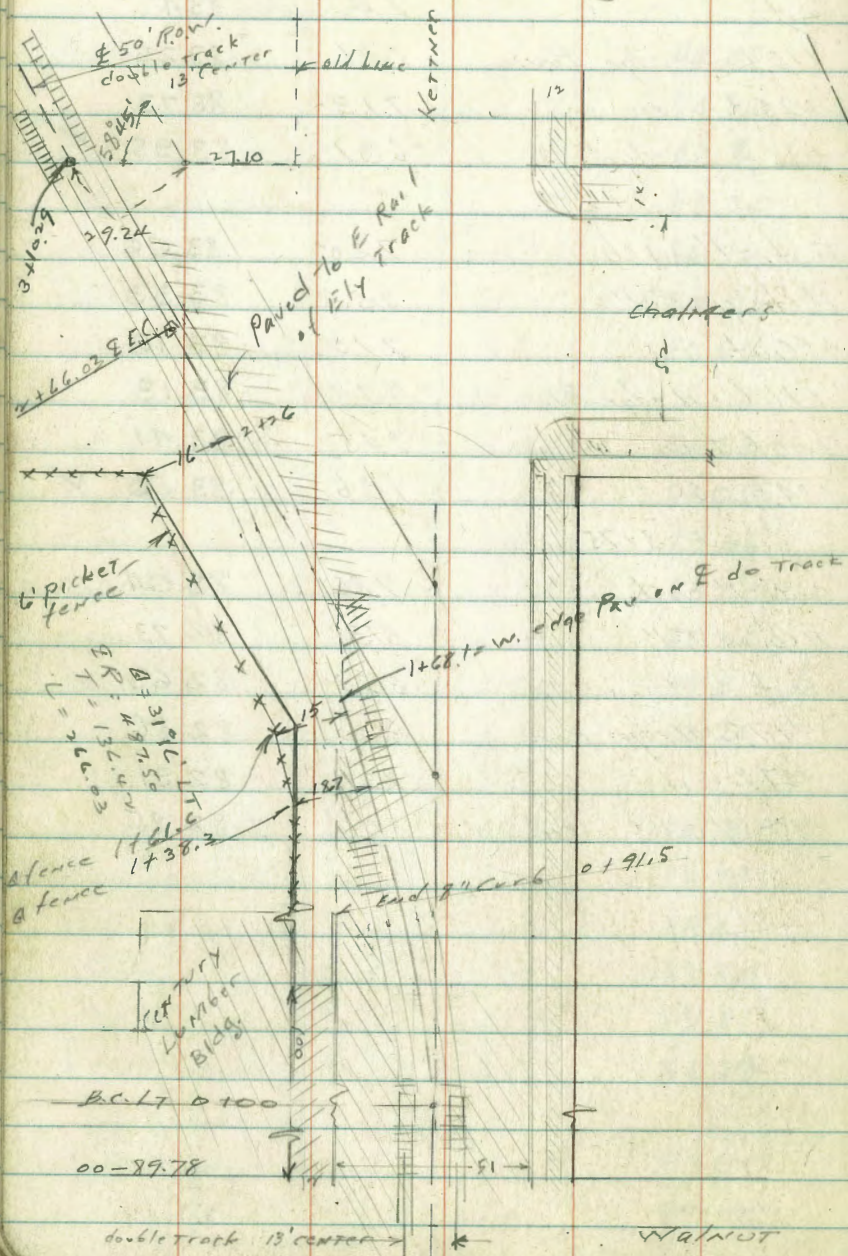 ℄ 50' R.O.W.
double track
13' Center
old Line
Kettner
12
58°45'
27.10
12'
3+10.29
29.24
Paved to E Rail
of Ely Track
Chalmers
2+66.03 ℄ E.C.
2+26
16'
12
6' picket
fence
1+68.1 = W. edge Pav on ℄ do Track
Δ = 31°16' LT
℄ R = 487.50
T = 136.42
L = 266.03
15
18.7
Δ fence 1+61.6
1+38.3
Δ fence
0+91.5
End 8" Curb
CENTURY
LUMBER
Bldg.
100
B.C. LT 0+00
00-89.78
51
double Track 13' center
Walnut